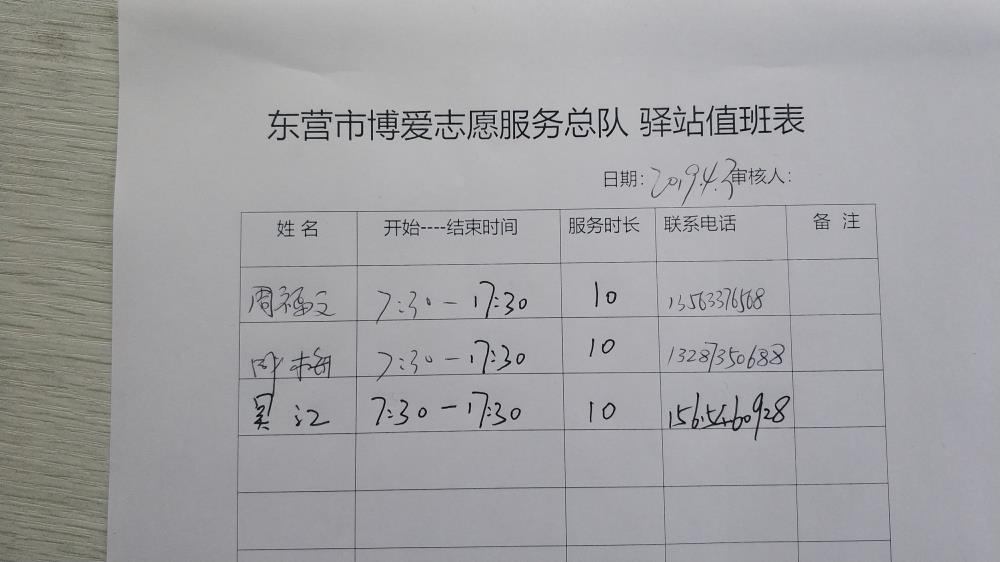 东营市博爱志愿服务总队 驿站值班表
日期：2019.4.3 审核人：
姓名 开始----结束时间 服务时长 联系电话 备 注
周福文 7:30－17:30 10 13563376568
梅 7:30－17:30 10 13287350688
吴江 7:30－17:30 10